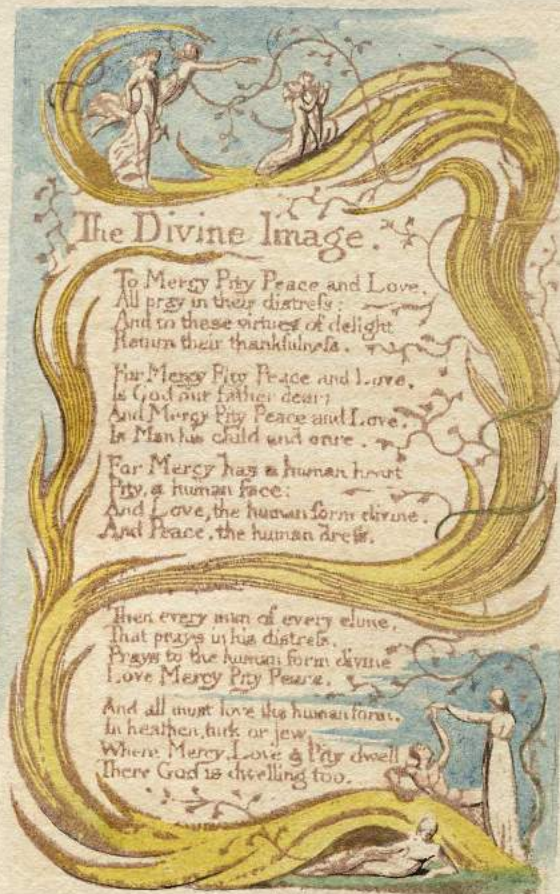 The Divine Image.
To Mercy Pity Peace and Love,
All pray in their distreſs:
And to these virtues of delight
Return their thankfulneſs.
For Mercy Pity Peace and Love,
Is God our father dear:
And Mercy Pity Peace and Love,
Is Man his child and care.
For Mercy has a human heart
Pity, a human face:
And Love, the human form divine,
And Peace, the human dreſs.
Then every man of every clime,
That prays in his distreſs,
Prays to the human form divine
Love Mercy Pity Peace.
And all must love the human form,
In heathen, turk or jew.
Where Mercy, Love & Pity dwell
There God is dwelling too.